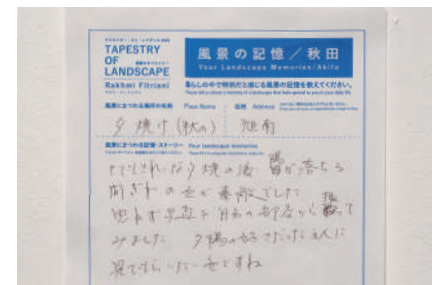 TAPESTRY
OF
LANDSCAPE
Rakhmi Fitriani
風景の記憶／秋田
Your Landscape Memories/Akita
暮らしの中で特別だと感じる風景の記憶を教えてください。
風景にまつわる場所の名称 Place Name
住所 Address
夕焼け(秋の)
旭南
風景にまつわる記憶・ストーリー Your landscape memories
とてもきれいな夕焼の湯 陽が落ちる
間ぎわの空が素敵でした
思わず写真を自分の部屋から撮って
みました 夕陽の好きだった友人に
見てもらいたい空ですね